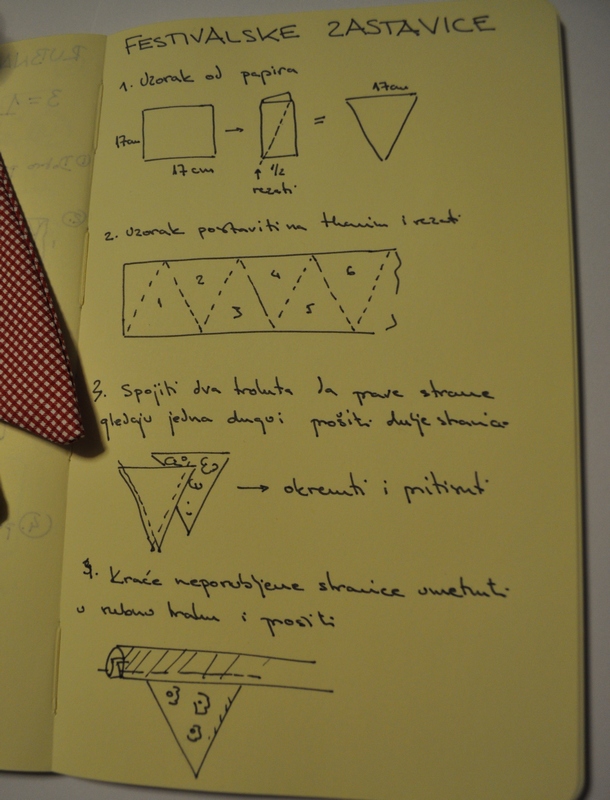 FESTIVALSKE ZASTAVICE
1. Uzorak od papira
17cm
17cm
→
1/2
rezati
=
17cm
2. Uzorak postaviti na tkanim i rezati
1 2 3 4 5 6
3. Spojiti dva trokuta da prave strane
gledaju jedna drugoj prošiti dulje stranice
→ okrenuti i pritisnuti
4. Kraće neporubljene stranice umetnuti
u rubnu traku i prošiti